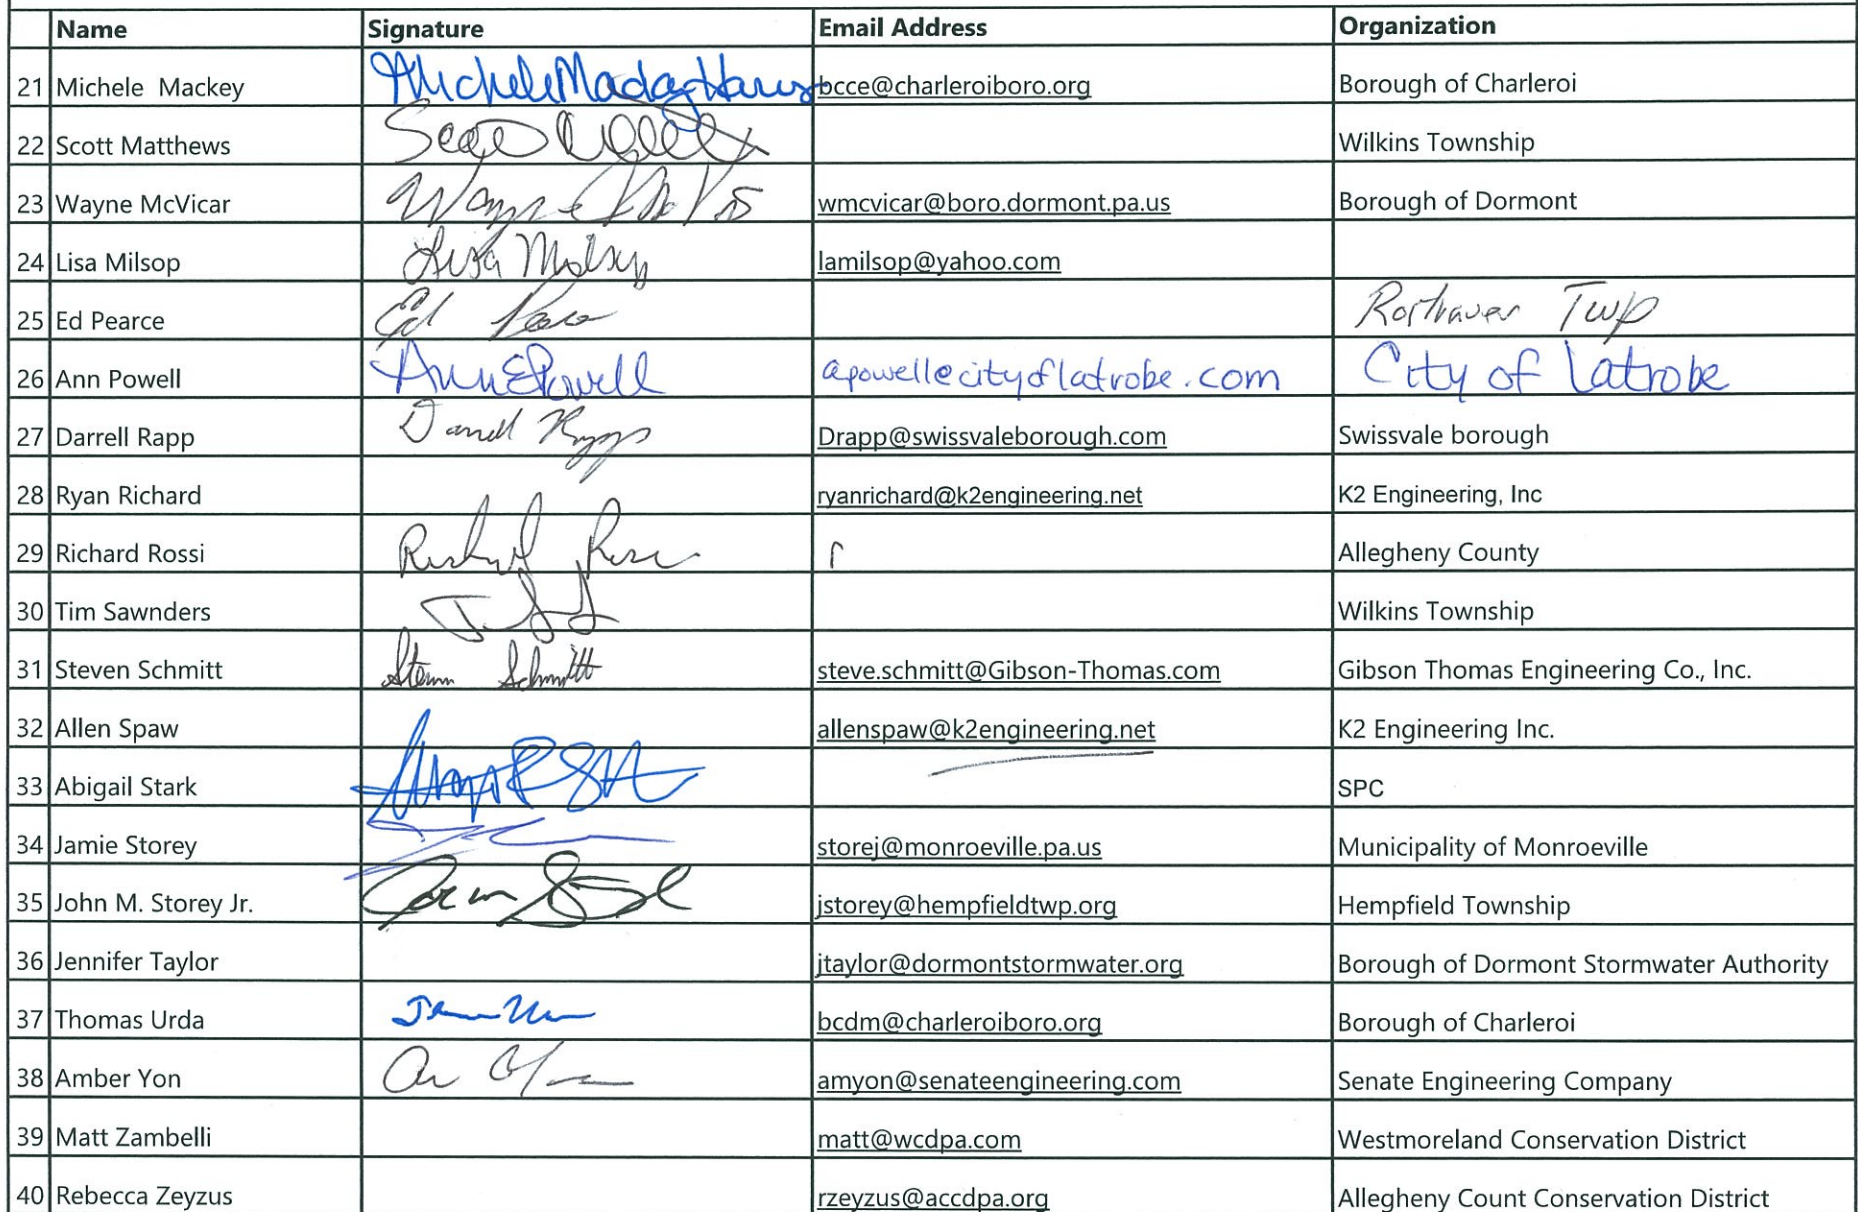 Name Signature Email Address Organization
21 Michele Mackey Michele Mackey Harris bcce@charleroiboro.org Borough of Charleroi
22 Scott Matthews Scott Wilkins Township
23 Wayne McVicar Wayne McVicar wmcvicar@boro.dormont.pa.us Borough of Dormont
24 Lisa Milsop Lisa Milsop lamilsop@yahoo.com
25 Ed Pearce Ed Pearce Rostraver Twp
26 Ann Powell Ann E Powell apowell@cityoflatrobe.com City of Latrobe
27 Darrell Rapp Darrell Rapp Drapp@swissvaleborough.com Swissvale borough
28 Ryan Richard ryanrichard@k2engineering.net K2 Engineering, Inc
29 Richard Rossi Richard Rossi r Allegheny County
30 Tim Sawnders Wilkins Township
31 Steven Schmitt Steven Schmitt steve.schmitt@Gibson-Thomas.com Gibson Thomas Engineering Co., Inc.
32 Allen Spaw allenspaw@k2engineering.net K2 Engineering Inc.
33 Abigail Stark SPC
34 Jamie Storey storej@monroeville.pa.us Municipality of Monroeville
35 John M. Storey Jr. jstorey@hempfieldtwp.org Hempfield Township
36 Jennifer Taylor jtaylor@dormontstormwater.org Borough of Dormont Stormwater Authority
37 Thomas Urda bcdm@charleroiboro.org Borough of Charleroi
38 Amber Yon amyon@senateengineering.com Senate Engineering Company
39 Matt Zambelli matt@wcdpa.com Westmoreland Conservation District
40 Rebecca Zeyzus rzeyzus@accdpa.org Allegheny Count Conservation District